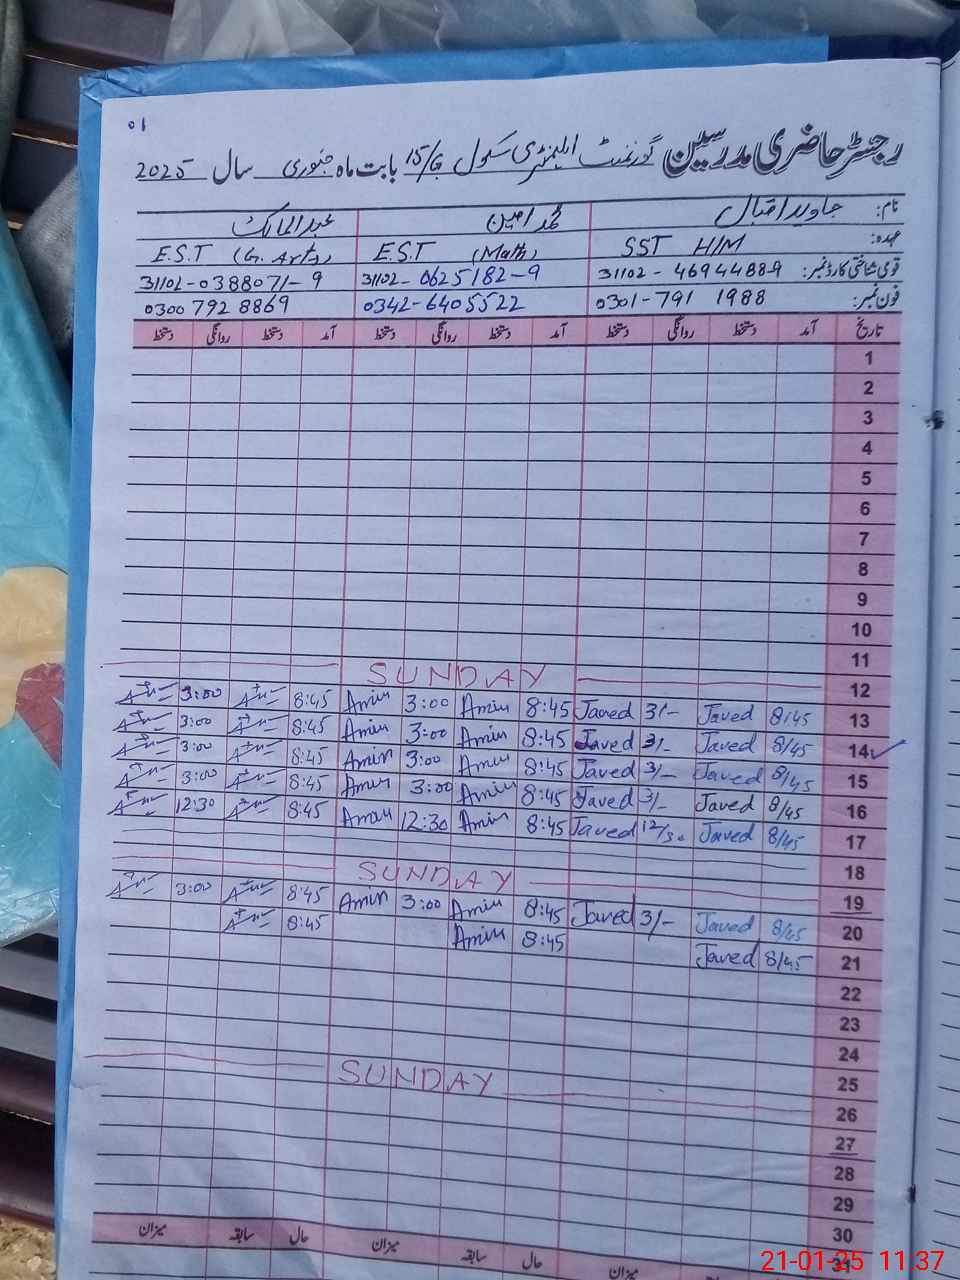 01
رجسٹر حاضری مدرسین گورنمنٹ ایلیمنٹری سکول 15/G بابت ماہ جنوری سال 2025
نام: جاوید اقبال محمد امین عبدالمالک
عہدہ: SST H/M E.S.T (Math) E.S.T (G. Arts)
قومی شناختی کارڈ نمبر: 31102-4694488-9 31102-0625182-9 31102-0388071-9
فون نمبر: 0301-791 1988 0342-6405522 0300 792 8869
تاریخ آمد دستخط روانگی دستخط آمد دستخط روانگی دستخط آمد دستخط روانگی دستخط
1
2
3
4
5
6
7
8
9
10
11
SUNDAY
12
13 8/45 Javed 3/- Javed 8:45 Amin 3:00 Amin 8:45 3:00
14 8/45 Javed 3/- Javed 8:45 Amin 3:00 Amin 8:45 3:00
15 8/45 Javed 3/- Javed 8:45 Amin 3:00 Amin 8:45 3:00
16 8/45 Javed 3/- Javed 8:45 Amin 3:00 Amin 8:45 3:00
17 8/45 Javed 12/30 Javed 8:45 Amin 12:30 Amin 8:45 12:30
18
SUNDAY
19
20 8/45 Javed 3/- Javed 8:45 Amin 3:00 Amin 8:45 3:00
21 8/45 Javed 8:45 Amin 8:45
22
23
24
25
SUNDAY
26
27
28
29
30
31
حال سابقہ میزان حال سابقہ میزان
میزان
21-01-25 11.37